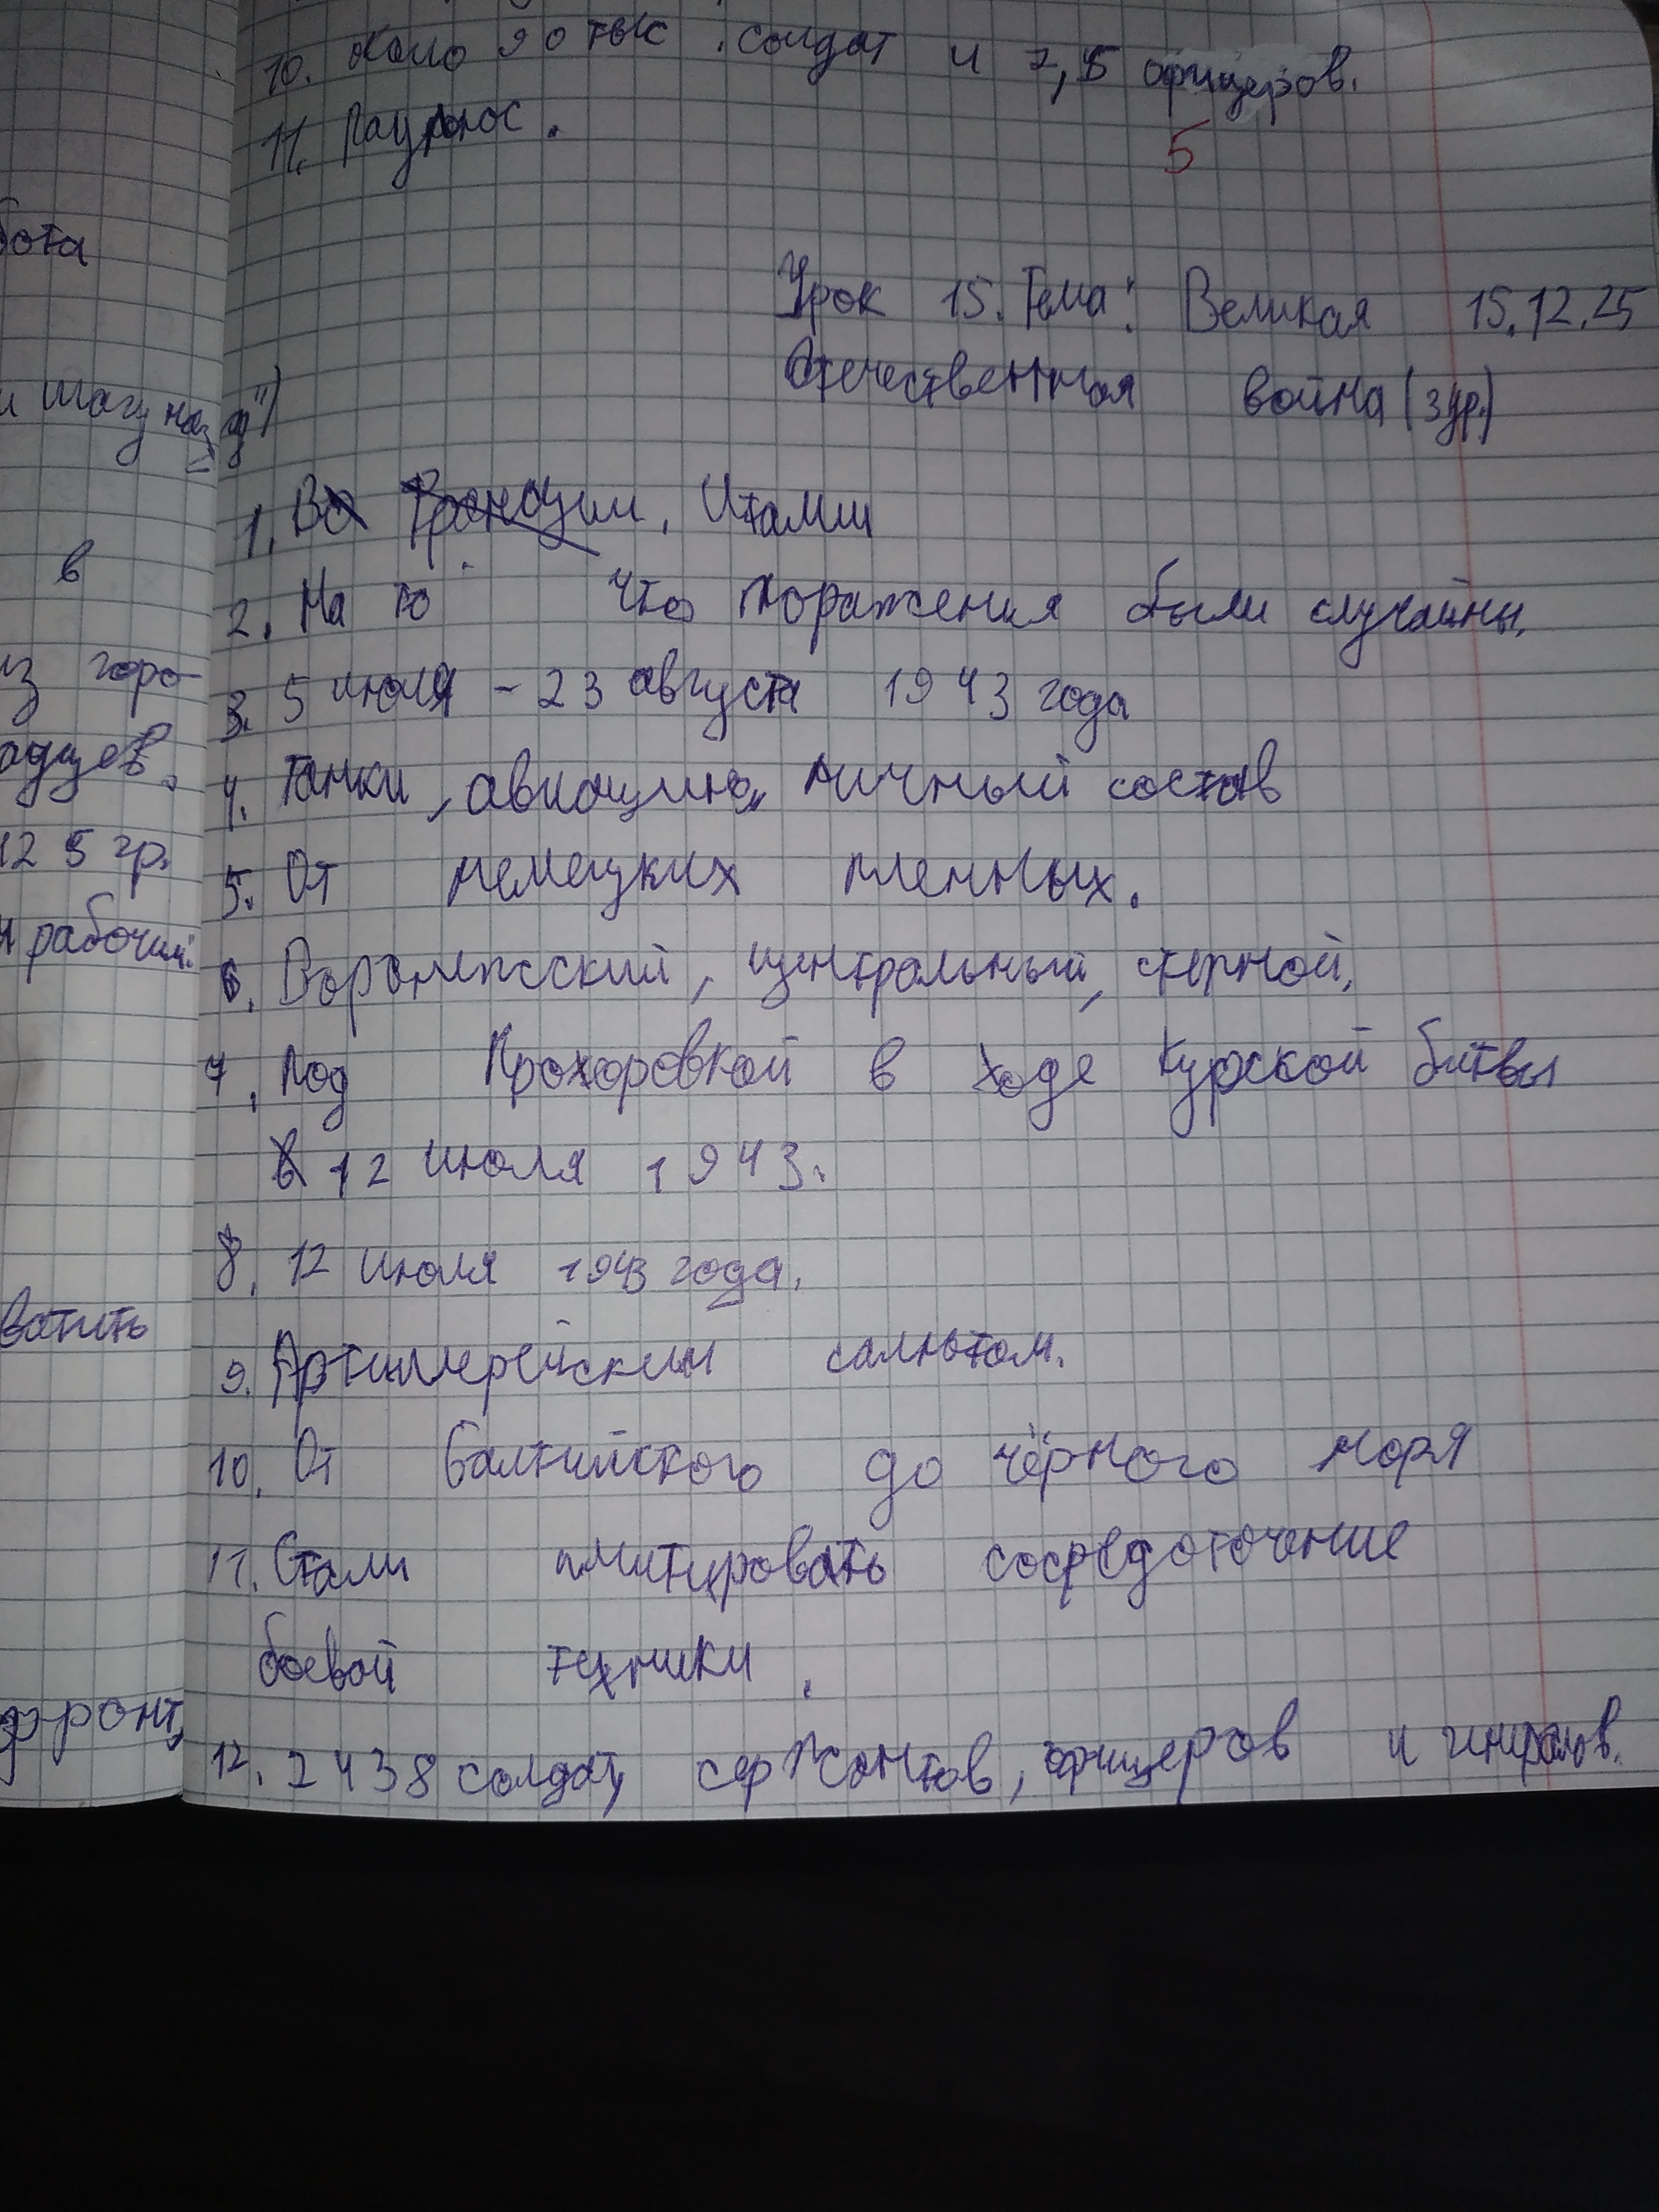 10. около 90 тыс. солдат и 2,5 офицеров.
11. Паулюс.
5
бота
Урок 15. Тема: Великая 15.12.25
Отечественная война (3 ур.)
и шагу назад")
1. Во Франции, Италии
в
2. На то что поражения были случайны.
из горо-
3. 5 июля - 23 августа 1943 года
адцев.
4. Танки, авиацию, личный состав
125 гр.
5. От немецких пленных.
и рабочим.
6. Воронежский, центральный, степной,
7. Под Прохоровкой в ходе Курской битвы
в 12 июля 1943.
8. 12 июля 1943 года.
ватить
9. Артиллерейским салютом.
10. От балтийского до чёрного моря
11. Стали имитировать сосредоточение
боевой техники.
фронт,
12. 2438 солдат, сержантов, офицеров и генералов.